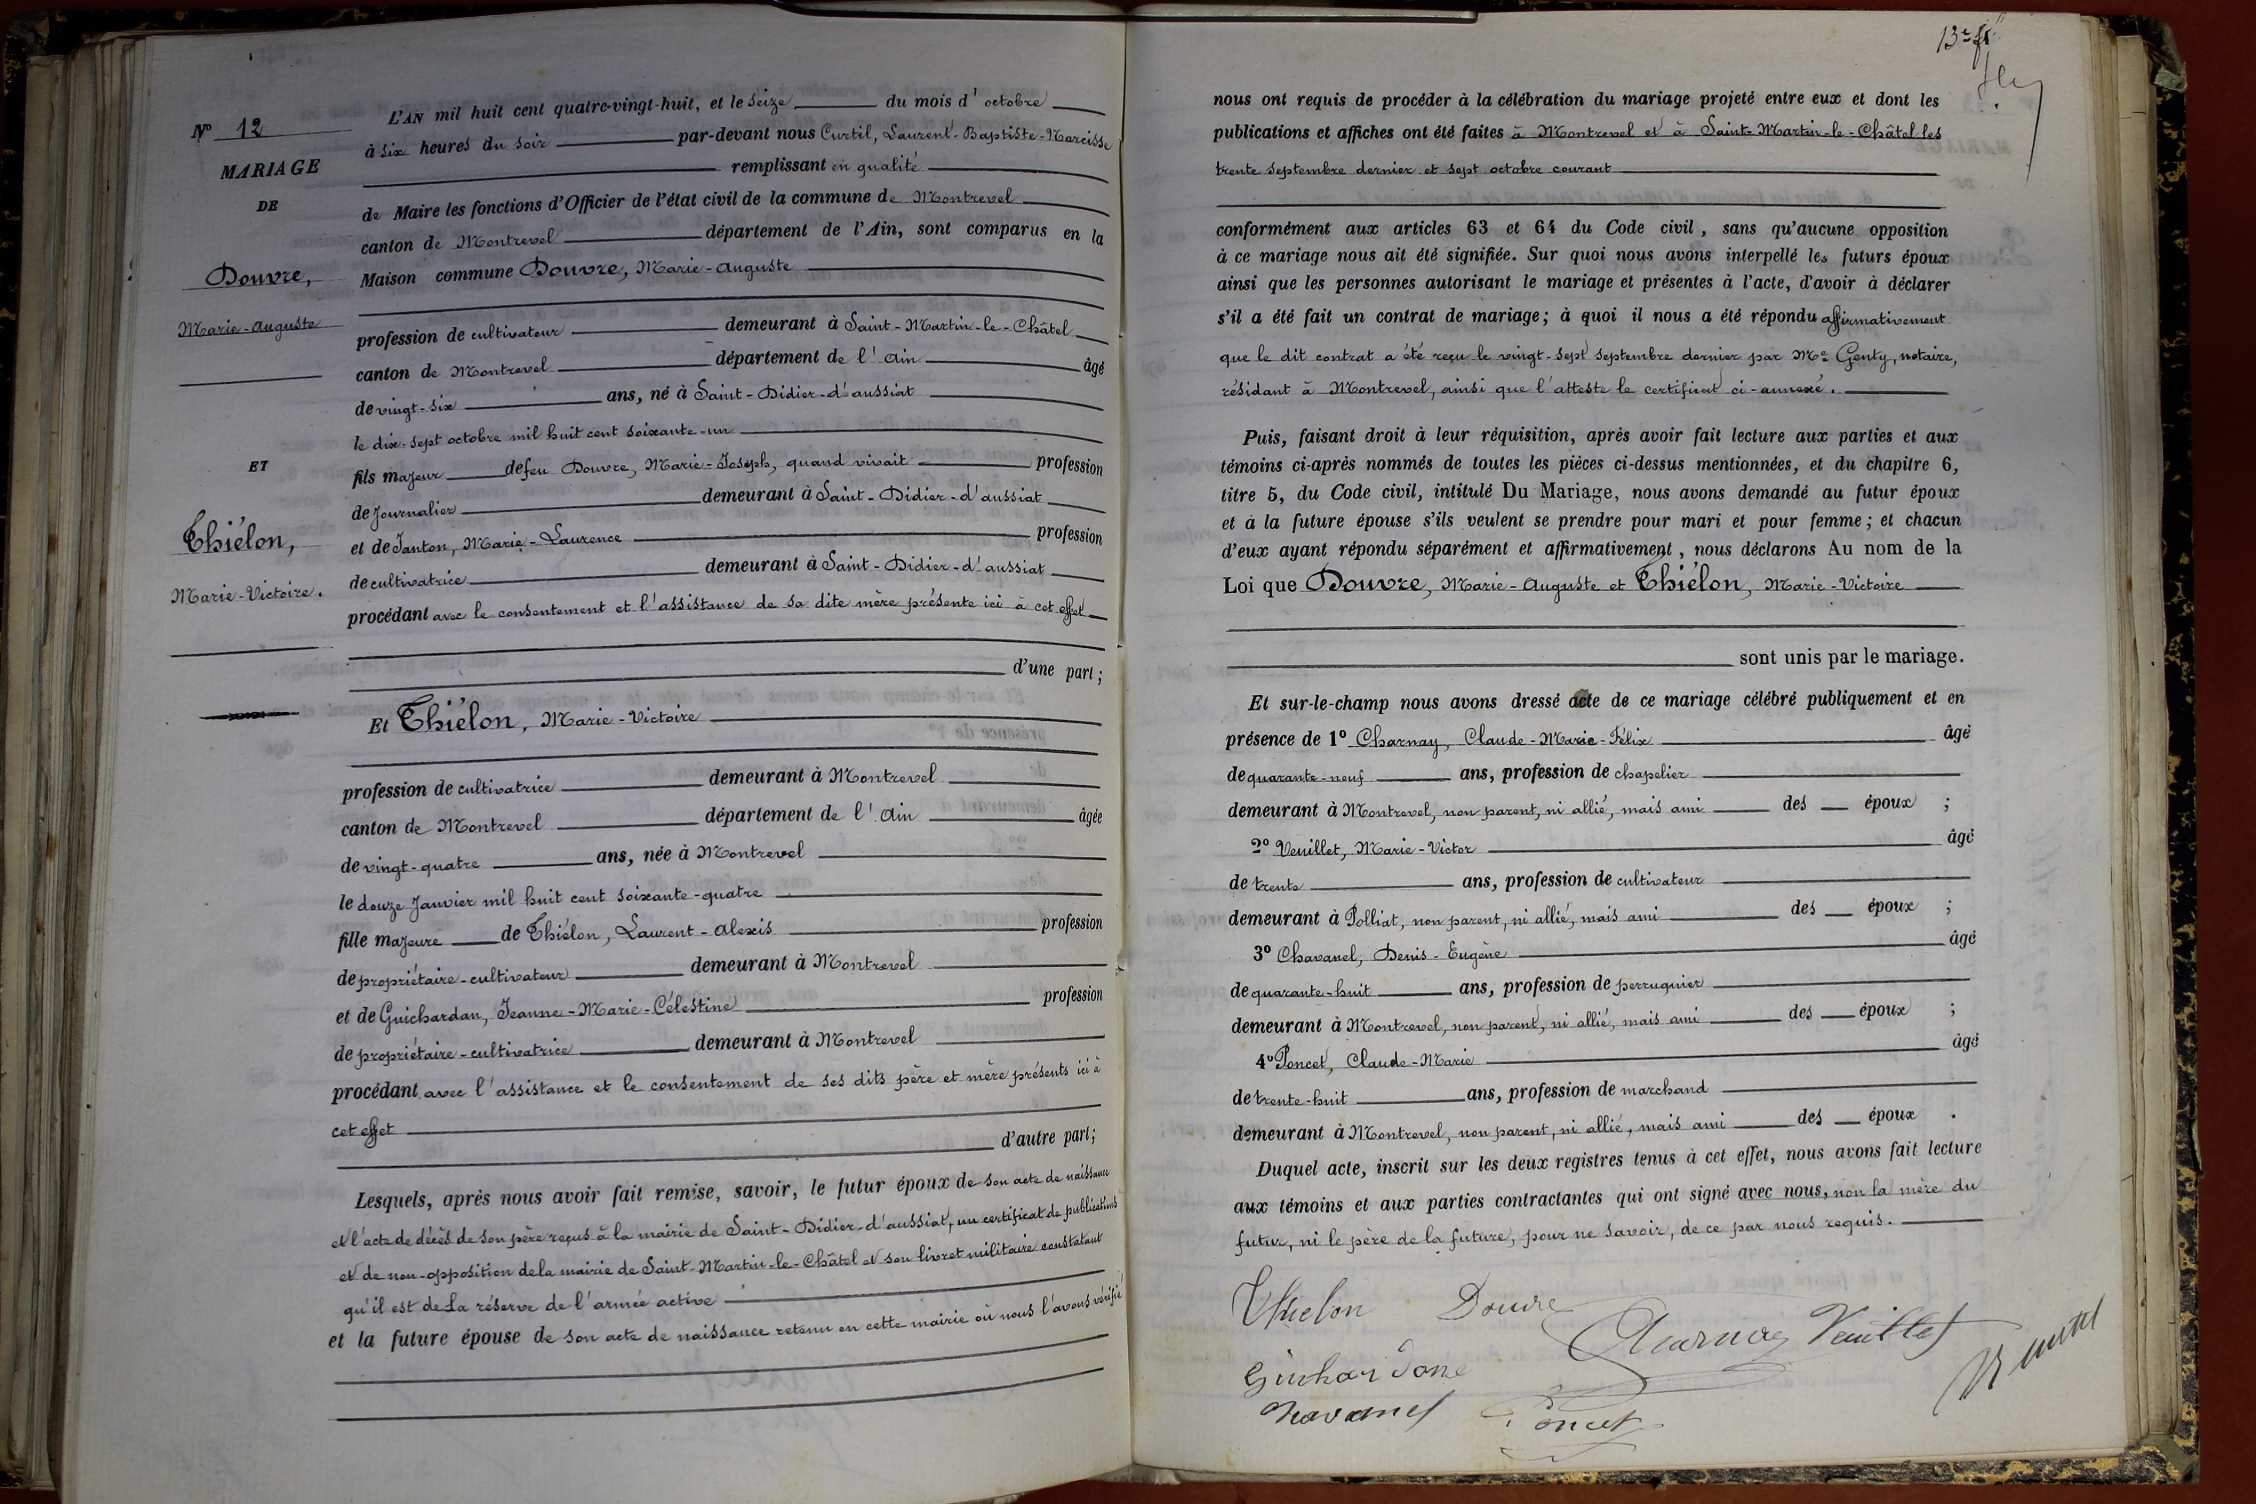 Nº 12
MARIAGE
DE
Douvre,
Marie-Auguste
ET
Thiélon,
Marie-Victoire.
L'AN mil huit cent quatre-vingt-huit, et le seize du mois d'octobre
à six heures du soir par-devant nous Curtil, Laurent-Baptiste-Narcisse
remplissant en qualité
de Maire les fonctions d'Officier de l'état civil de la commune de Montrevel
canton de Montrevel département de l'Ain, sont comparus en la
Maison commune Douvre, Marie-Auguste
profession de cultivateur demeurant à Saint-Martin-le-Châtel
canton de Montrevel département de l'Ain âgé
de vingt-six ans, né à Saint-Didier-d'aussiat
le dix-sept octobre mil huit cent soixante-un
fils majeur de feu Douvre, Marie-Joseph, quand vivait profession
de Journalier demeurant à Saint-Didier-d'aussiat
et de Janton, Marie-Laurence profession
de cultivatrice demeurant à Saint-Didier-d'aussiat
procédant avec le consentement et l'assistance de sa dite mère présente ici à cet effet
d'une part;
Et Thiélon, Marie-Victoire
profession de cultivatrice demeurant à Montrevel
canton de Montrevel département de l'Ain âgée
de vingt-quatre ans, née à Montrevel
le douze Janvier mil huit cent soixante-quatre
fille majeure de Thiélon, Laurent-Alexis profession
de propriétaire-cultivateur demeurant à Montrevel
et de Guichardan, Jeanne-Marie-Célestine profession
de propriétaire-cultivatrice demeurant à Montrevel
procédant avec l'assistance et le consentement de ses dits père et mère présents ici à
cet effet
d'autre part;
Lesquels, après nous avoir fait remise, savoir, le futur époux de son acte de naissance
et l'acte de décès de son père reçus à la mairie de Saint-Didier-d'aussiat, un certificat de publications
et de non-opposition de la mairie de Saint-Martin-le-Châtel et son livret militaire constatant
qu'il est de la réserve de l'armée active
et la future épouse de son acte de naissance retenu en cette mairie où nous l'avons vérifié
nous ont requis de procéder à la célébration du mariage projeté entre eux et dont les
publications et affiches ont été faites à Montrevel et à Saint-Martin-le-Châtel les
trente septembre dernier et sept octobre courant
conformément aux articles 63 et 64 du Code civil, sans qu'aucune opposition
à ce mariage nous ait été signifiée. Sur quoi nous avons interpellé les futurs époux
ainsi que les personnes autorisant le mariage et présentes à l'acte, d'avoir à déclarer
s'il a été fait un contrat de mariage; à quoi il nous a été répondu affirmativement
que le dit contrat a été reçu le vingt-sept septembre dernier par Me Genty, notaire,
résidant à Montrevel, ainsi que l'atteste le certificat ci-annexé.
Puis, faisant droit à leur réquisition, après avoir fait lecture aux parties et aux
témoins ci-après nommés de toutes les pièces ci-dessus mentionnées, et du chapitre 6,
titre 5, du Code civil, intitulé Du Mariage, nous avons demandé au futur époux
et à la future épouse s'ils veulent se prendre pour mari et pour femme; et chacun
d'eux ayant répondu séparément et affirmativement, nous déclarons Au nom de la
Loi que Douvre, Marie-Auguste et Thiélon, Marie-Victoire
sont unis par le mariage.
Et sur-le-champ nous avons dressé acte de ce mariage célébré publiquement et en
présence de 1º Charnay, Claude-Marie-Félix âgé
de quarante-neuf ans, profession de chapelier
demeurant à Montrevel, non parent, ni allié, mais ami des époux ;
2º Veuillet, Marie-Victor âgé
de trente ans, profession de cultivateur
demeurant à Polliat, non parent, ni allié, mais ami des époux ;
3º Chavanel, Denis-Eugène âgé
de quarante-huit ans, profession de perruquier
demeurant à Montrevel, non parent, ni allié, mais ami des époux ;
4º Poncet, Claude-Marie âgé
de trente-huit ans, profession de marchand
demeurant à Montrevel, non parent, ni allié, mais ami des époux .
Duquel acte, inscrit sur les deux registres tenus à cet effet, nous avons fait lecture
aux témoins et aux parties contractantes qui ont signé avec nous, non la mère du
futur, ni le père de la future, pour ne savoir, de ce par nous requis.
Thielon Douvre
Charnay Veuillet
Guichardane
Chavanel Poncet